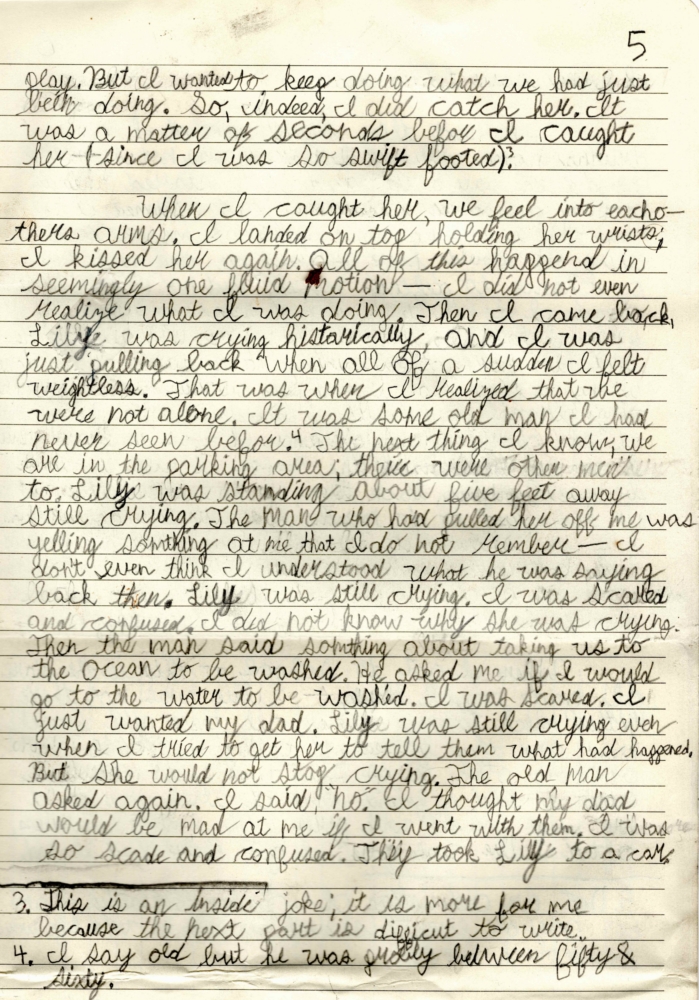 5
play. But I wanted to keep doing what we had just
been doing. So, indeed, I did catch her. It
was a matter of seconds befor I caught
her (since I was so swift footed)³.
When I caught her, we feel into eacho-
thers arms. I landed on top holding her wrists;
I kissed her again. All of this happend in
seemingly one fluid motion — I did not even
realize what I was doing. Then I came back,
Lilly was crying histarically, and I was
just pulling back when all of a sudden I felt
weightless. That was when I realized that we
were not alone. It was some old man I had
never seen befor.⁴ The next thing I know, we
are in the parking area; there were other men
to. Lily was standing about five feet away
still crying. The man who had pulled her off me was
yelling somthing at me that I do not rember — I
dont even think I understood what he was saying
back then. Lily was still crying. I was scared
and confused. I did not know why she was crying.
Then the man said somthing about taking us to
the ocean to be washed. He asked me if I would
go to the water to be washed. I was scared. I
just wanted my dad. Lily was still crying even
when I tried to get her to tell them what had happened.
But she would not stop crying. The old man
asked again. I said, "no." I thought my dad
would be mad at me if I went with them. I was
so scade and confused. They took Lily to a car.
3. This is an 'inside' joke; it is more for me
because the next part is difficut to write.
4. I say old but he was probly between fifty &
sixty.